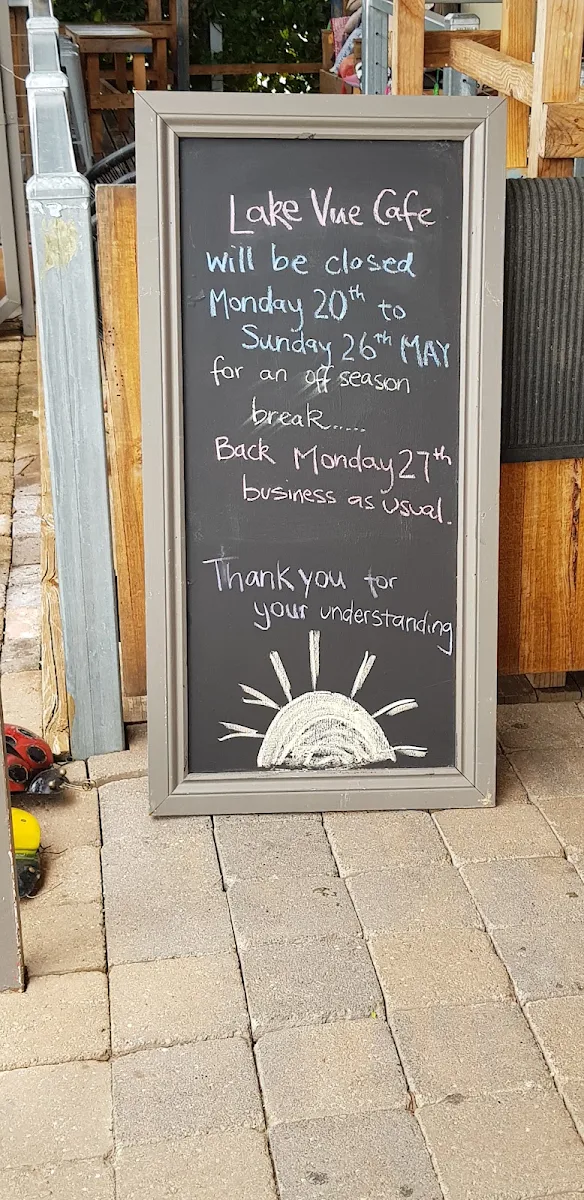 Lake Vue Cafe
will be closed
Monday 20th to
Sunday 26th MAY
for an off season
break.....
Back Monday 27th
business as usual.
Thank you for
your understanding